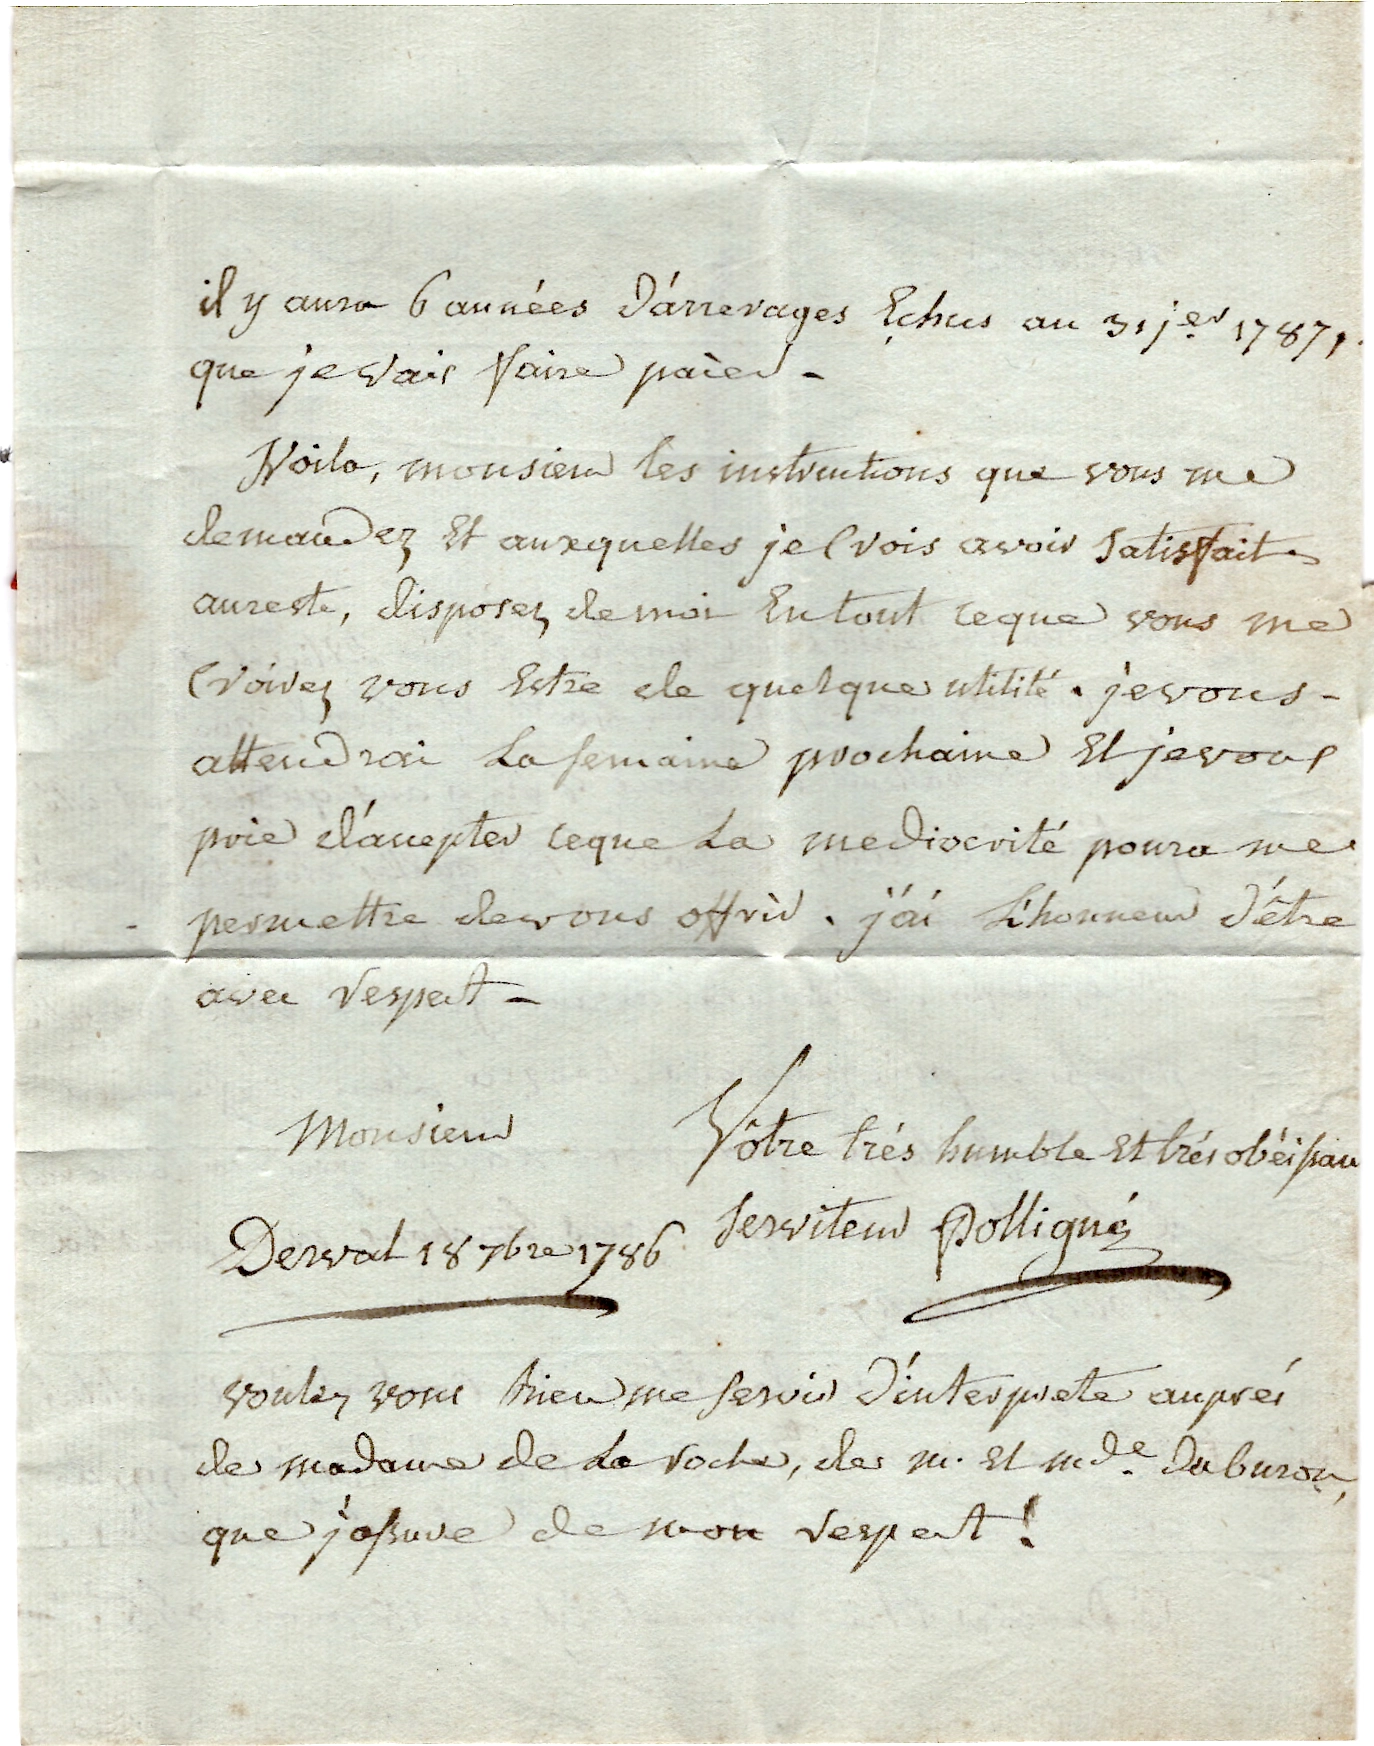 il y aura 6 années d'árrerages Echus au 31 jer 1787,
que je vais faire païer -
Voila, monsieur les instructions que vous me
demandez Et auxquelles je Crois avoir Satisfait
aureste, disposez de moi En tout ceque vous me
Croirez vous Estre de quelque utilité. je vous -
attendrai La semaine prochaine Et je vous
prie d'accepter ceque La mediocrité poura me
permettre de vous offrir. j'ai L'honneur d'être
avec respect -
Monsieur
Vôtre trés humble Et trés obéissan
serviteur Polligné
Derval 18 7bre 1786
voulez vous bien me servir d'interprete auprés
de madame de La roche, de m. Et mde. Duburon,
que j'assure de mon respect!